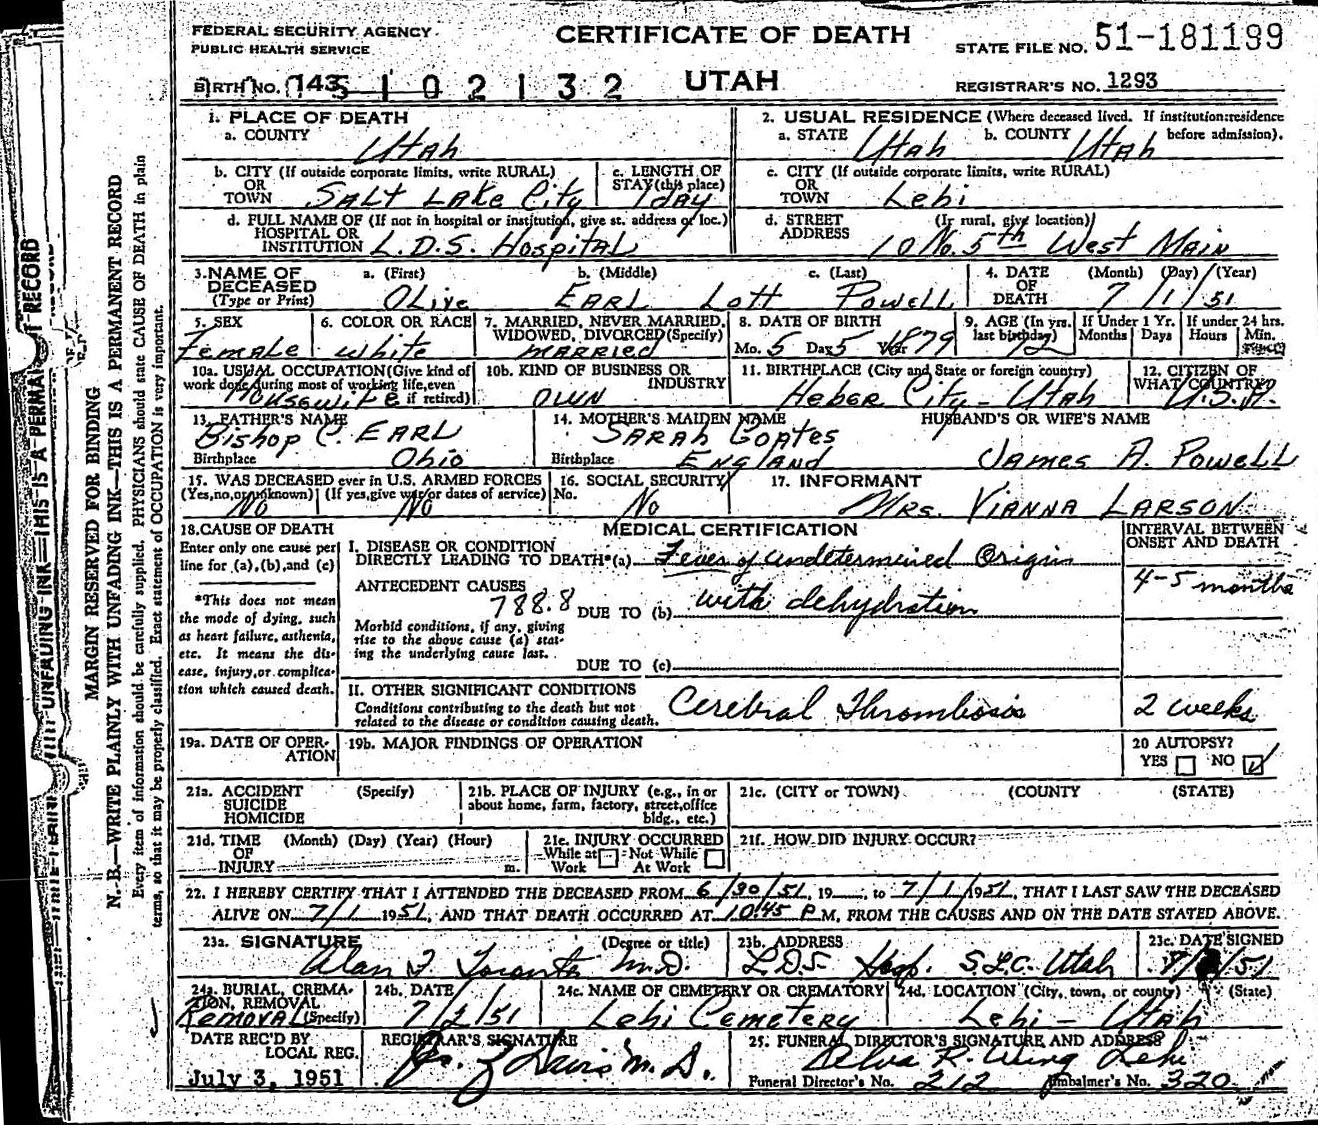 FEDERAL SECURITY AGENCY
PUBLIC HEALTH SERVICE
CERTIFICATE OF DEATH
STATE FILE NO. 51-181199
BIRTH NO. 143 5 1 0 2 1 3 2
UTAH
REGISTRAR'S NO. 1293
1. PLACE OF DEATH
a. COUNTY Utah
2. USUAL RESIDENCE (Where deceased lived. If institution:residence before admission).
a. STATE Utah b. COUNTY Utah
b. CITY (If outside corporate limits, write RURAL) OR TOWN Salt Lake City
c. LENGTH OF STAY (this place) 1 day
c. CITY (If outside corporate limits, write RURAL) OR TOWN Lehi
d. FULL NAME OF (If not in hospital or institution, give st. address or loc.) HOSPITAL OR INSTITUTION L.D.S. Hospital
d. STREET ADDRESS (If rural, give location) 10 No. 5th West Main
3. NAME OF DECEASED (Type or Print) a. (First) Olive b. (Middle) Earl Lott c. (Last) Powell
4. DATE OF DEATH (Month) (Day) (Year) 7/1/51
5. SEX Female
6. COLOR OR RACE white
7. MARRIED, NEVER MARRIED, WIDOWED, DIVORCED (Specify) married
8. DATE OF BIRTH Mo. 5 Day 5 Year 1879
9. AGE (In yrs. last birthday) 72
If Under 1 Yr. Months Days
If under 24 hrs. Hours Min.
10a. USUAL OCCUPATION (Give kind of work done during most of working life, even if retired) Housewife
10b. KIND OF BUSINESS OR INDUSTRY own
11. BIRTHPLACE (City and State or foreign country) Heber City - Utah
12. CITIZEN OF WHAT COUNTRY U.S.A.
13. FATHER'S NAME Bishop C. Earl
Birthplace Ohio
14. MOTHER'S MAIDEN NAME Sarah Coates
Birthplace England
HUSBAND'S OR WIFE'S NAME
James A. Powell
15. WAS DECEASED ever in U.S. ARMED FORCES (Yes,no,or unknown) No (If yes,give war/or dates of service) No
16. SOCIAL SECURITY No. No
17. INFORMANT Mrs. Vianna Larson
18. CAUSE OF DEATH
Enter only one cause per line for (a),(b),and (c)
*This does not mean the mode of dying, such as heart failure, asthenia, etc. It means the disease, injury,or complication which caused death.
MEDICAL CERTIFICATION
INTERVAL BETWEEN ONSET AND DEATH
I. DISEASE OR CONDITION DIRECTLY LEADING TO DEATH*(a) Fever of undetermined Origin
4-5 months
ANTECEDENT CAUSES
788.8 DUE TO (b) with dehydration
Morbid conditions, if any, giving rise to the above cause (a) stating the underlying cause last.
DUE TO (c)
II. OTHER SIGNIFICANT CONDITIONS
Conditions contributing to the death but not related to the disease or condition causing death. Cerebral Thrombosis 2 weeks
19a. DATE OF OPERATION
19b. MAJOR FINDINGS OF OPERATION
20 AUTOPSY? YES NO
21a. ACCIDENT SUICIDE HOMICIDE (Specify)
21b. PLACE OF INJURY (e.g., in or about home, farm, factory, street,office bldg., etc.)
21c. (CITY or TOWN) (COUNTY (STATE)
21d. TIME OF INJURY (Month) (Day) (Year) (Hour) m.
21e. INJURY OCCURRED While at Work Not While At Work
21f. HOW DID INJURY OCCUR?
22. I HEREBY CERTIFY THAT I ATTENDED THE DECEASED FROM 6/30/51, 19__, to 7/1/1951, THAT I LAST SAW THE DECEASED
ALIVE ON 7/1 1951, AND THAT DEATH OCCURRED AT 10:45 P M, FROM THE CAUSES AND ON THE DATE STATED ABOVE.
23a. SIGNATURE (Degree or title) Alan F Toronto M.D.
23b. ADDRESS L.D.S. Hosp. S.L.C. Utah
23c. DATE SIGNED
24a. BURIAL, CREMATION, REMOVAL (Specify) Removal
24b. DATE 7/2/51
24c. NAME OF CEMETERY OR CREMATORY Lehi Cemetery
24d. LOCATION (City, town, or county) (State) Lehi - Utah
DATE REC'D BY LOCAL REG. July 3, 1951
REGISTRAR'S SIGNATURE Davis M.D.
25. FUNERAL DIRECTOR'S SIGNATURE AND ADDRESS R. Wing Lehi
Funeral Director's No. 212 Embalmer's No. 320
MARGIN RESERVED FOR BINDING
N. B.—WRITE PLAINLY WITH UNFADING INK—THIS IS A PERMANENT RECORD
Every item of information should be carefully supplied. PHYSICIANS should state CAUSE OF DEATH in plain
terms, so that it may be properly classified. Exact statement of OCCUPATION is very important.
UNFADING INK—THIS IS A PERMANENT RECORD